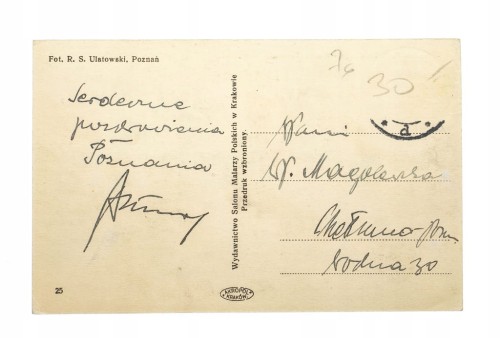 Fot. R. S. Ulatowski, Poznań
Serdeczne
pozdrowienia
Poznania
25
Wydawnictwo Salonu Malarzy Polskich w Krakowie
Przedruk wzbroniony.
AKROPOL
KRAKÓW
74
30
* d *
Pani
W. Magalewska
Chełmno-Pom
Wodna 30